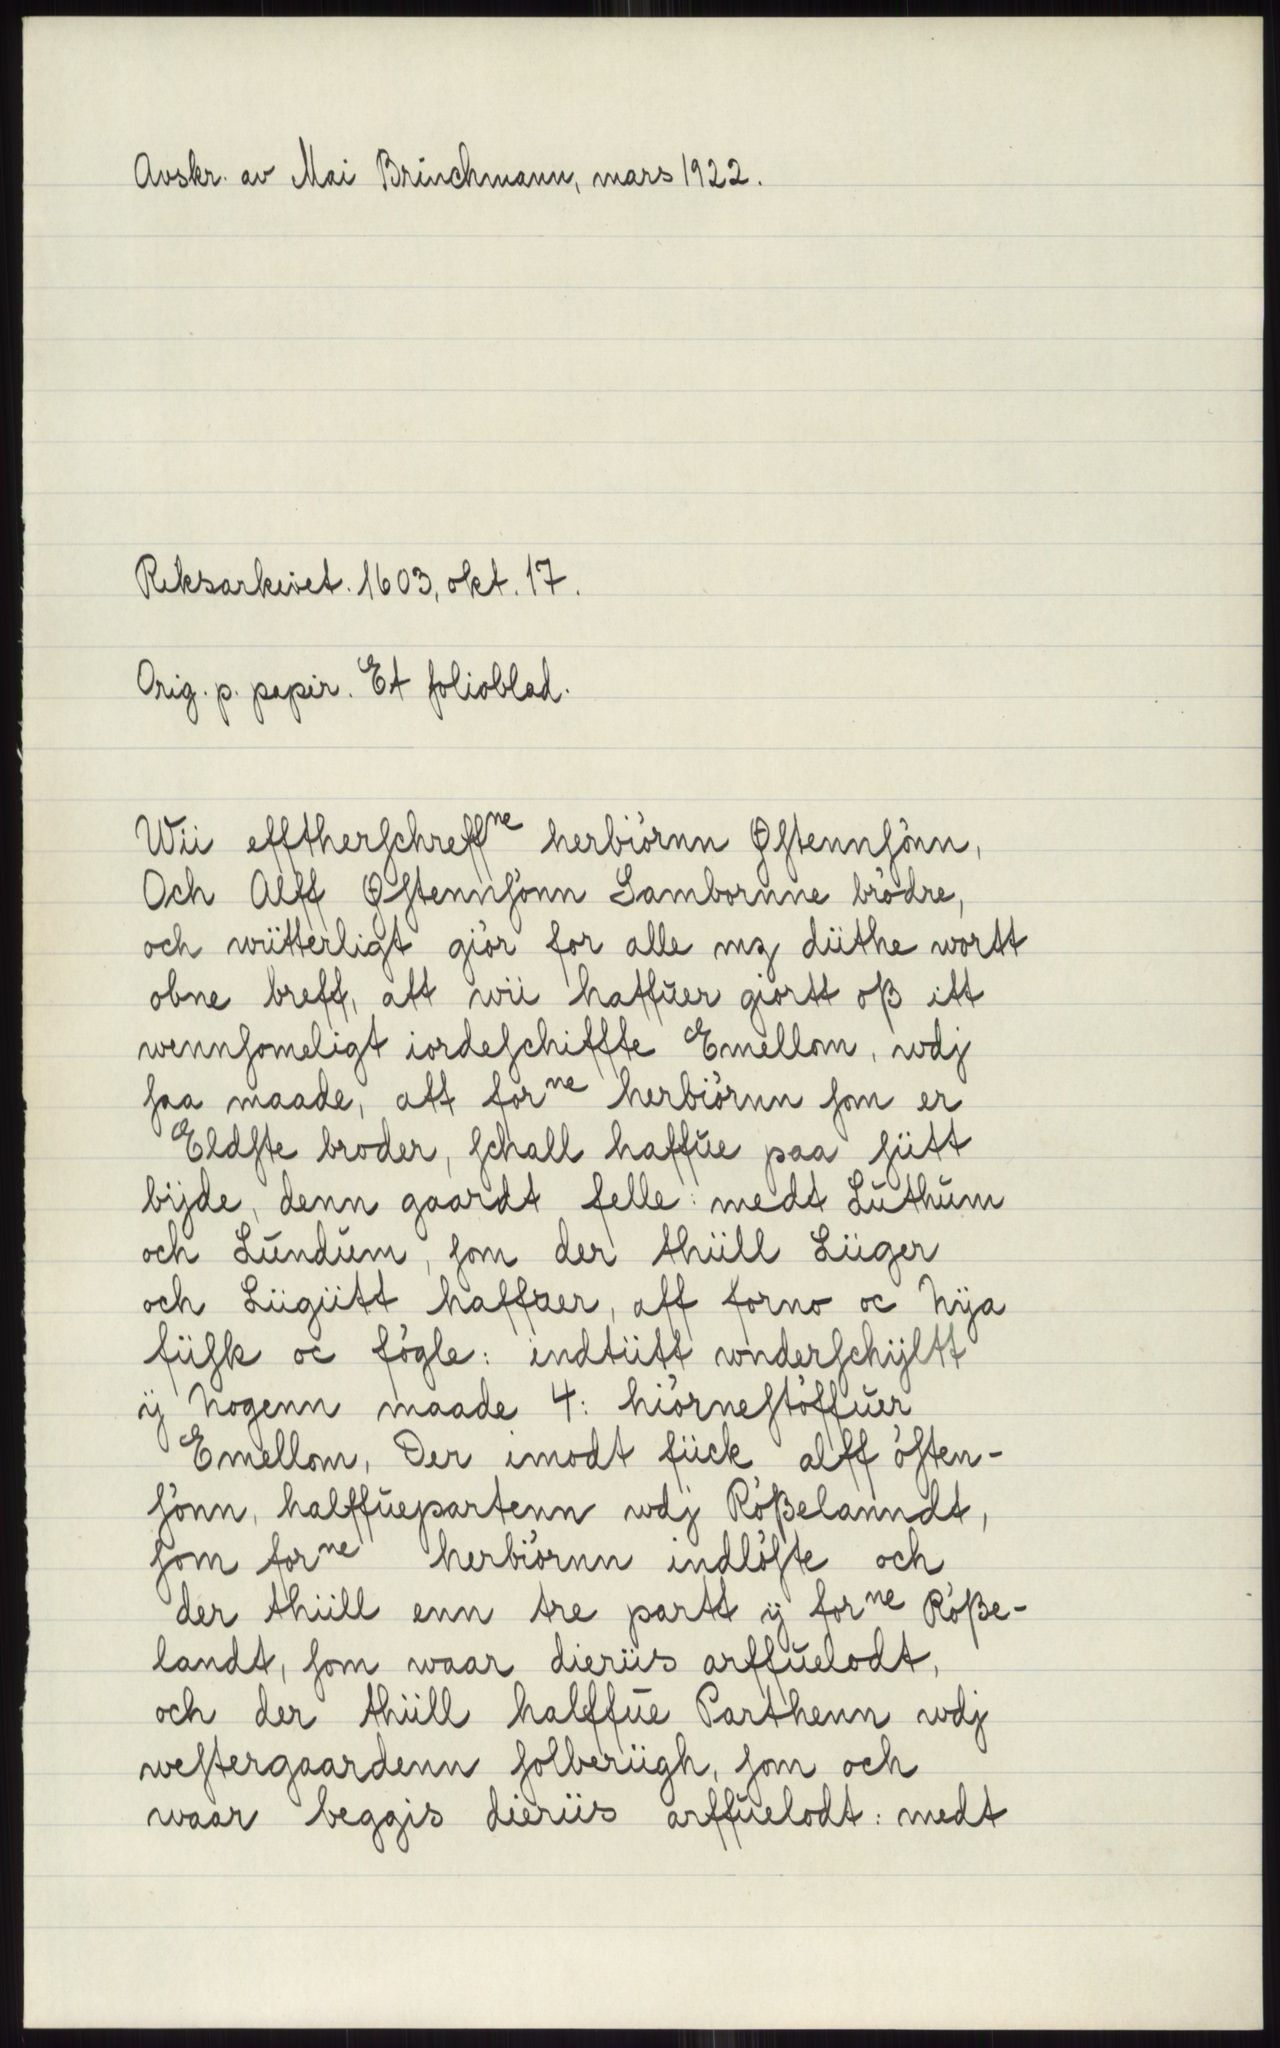 Avskr. av Mai Brinchmann, mars 1922.
Riksarkivet. 1603, okt. 17.
Orig. p. papir. Et folioblad.
Wii efftherſchreffⁿᵉ herbiörnn Øſtennſönn,
Och Alff Øſtennſönn Sambornne brödre,
och wütterligt giör for alle mz düthe wortt
obne breff, att wii haffuer giortt oß itt
wennſomeligt iordeſchiffte Emellom, wdj
ſaa maade, att forⁿᵉ herbiörnn ſom er
Eldſte broder, ſchall haffŭe paa ſütt
bijde, denn gaardt felle: medt Lŭthŭm
och Lŭndŭm, ſom der thüll Lüger
och Lügütt haffuer, aff forno oc Nÿa
füſk oc fögle: indtütt wnderſchÿltt
ÿ Nogenn maade 4: hiörneſtöffŭer
Emellom, Der imodt fück alff öſten-
ſönn, halffŭepartenn wdj Rößelanndt,
ſom forⁿᵉ herbiörnn indlöſte och
der thüll enn tre partt ÿ forⁿᵉ Röße-
landt, ſom waar dieriis arffŭelodt,
och der thüll halffŭe Parthenn wdj
weſtergaardenn ſolberügh, ſom och
waar beggis dieriis arffŭelodt: medt